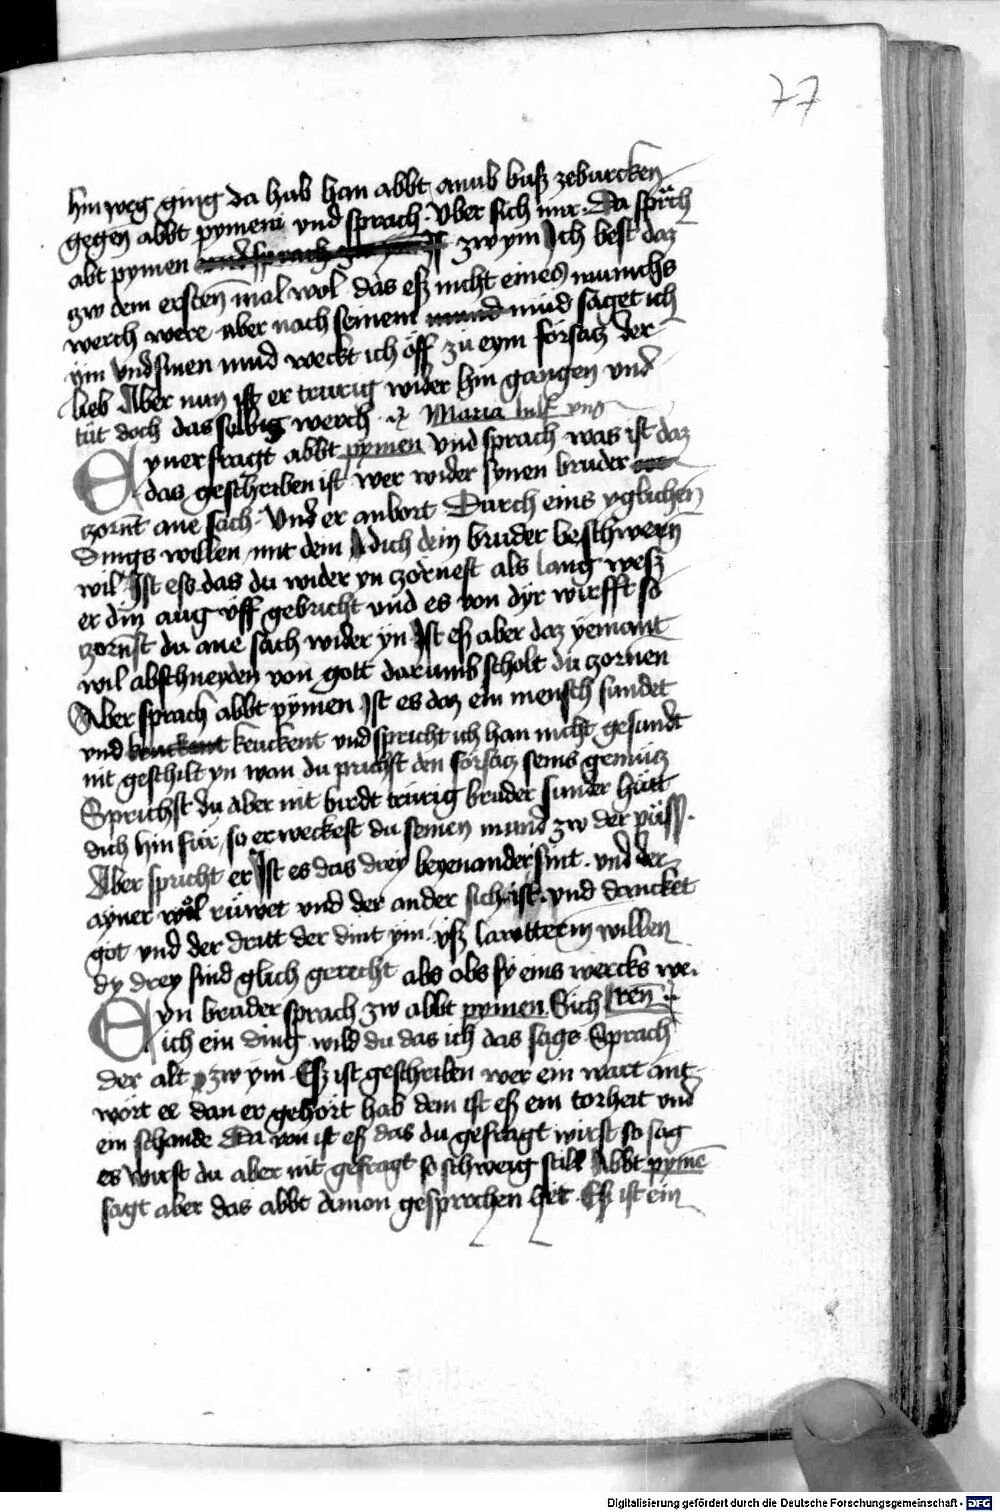 77
hin weg ging da hub han abbt anub buß zebürcken
gegen abbt pymen und sprach. Uber sich mir. Da sprach
abt pymen zw ym Ich best daz
zw dem ersten mal wol das eß nicht eines münichs
werch were aber nach seinem mud saget ich
ym und sinen mud weckt ich off zu eym forsatz der
lieb Aber nun ist er trurig wider hin gangen und
tüt doch das selbig werch Maria hilf uns
Eyner fragt abbt pymen und sprach was ist daz
das geschriben ist wer wider synen bruder
zornt ane sach. Und er antbort Durch eins yglichen
dings wellen mit dem dich dein bruder beschwern
wil Ist eß das du wider yn zornest als lang weß
er din aug uff gebricht und es von dyr wirfft so
zornst du ane sach wider yn Ist eß aber daz yemant
wil abschneyden von gott darumb scholt du zornen
Aber sprach abbt pymen Ist es daz ein mensch sundet
und keuckent und spricht ich han nicht gesundt
nit geschilt yn wan du prichst den forsatz seins gemütz
Sprichst du aber nit birdt trürig bruder sunder hütt
dich hin für, so erweckest du seinen mund zw der püß.
Aber spricht er Ist es das drey beyenander sint. und der
ayner wol rüwet und der ander sich ist. und dancket
got und der dritt der dint ym. uß lawtterm willen
dy drey sind glich gerecht als obs sy eins wercks we.
ren
Eyn bruder sprach zw abbt pymen. Sich
ich ein ding wild du das ich das sags Sprach
der alt zw ym. Eß ist geschriben wer ein wart ant
wort ee dan er gehört hab dem ist eß ein torheit und
ein schande Da von ist eß das du gefragt wirst so sag
es wirst du aber nit gefragt so schweig still Abbt pymen
sagt aber das abbt amon gesprochen het. Eß ist ein
Digitalisierung gefördert durch die Deutsche Forschungsgemeinschaft - DFG